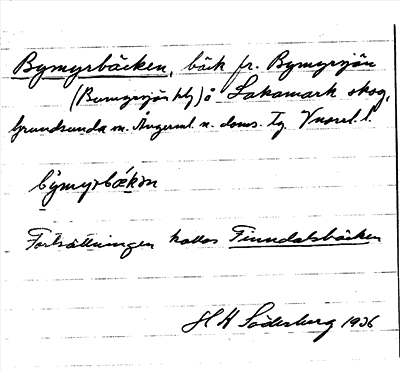 Bymyrbäcken, bäck fr. Bymyrsjön
(Bymyrsjön kbl) å Lakamark skog,
Grundsunda sn. Ångerml. n. doms. Tg. Vnorrl. l.
by̆myrbækən
Fortsättningen kallas Finndalsbäcken
H H Söderburg 1936